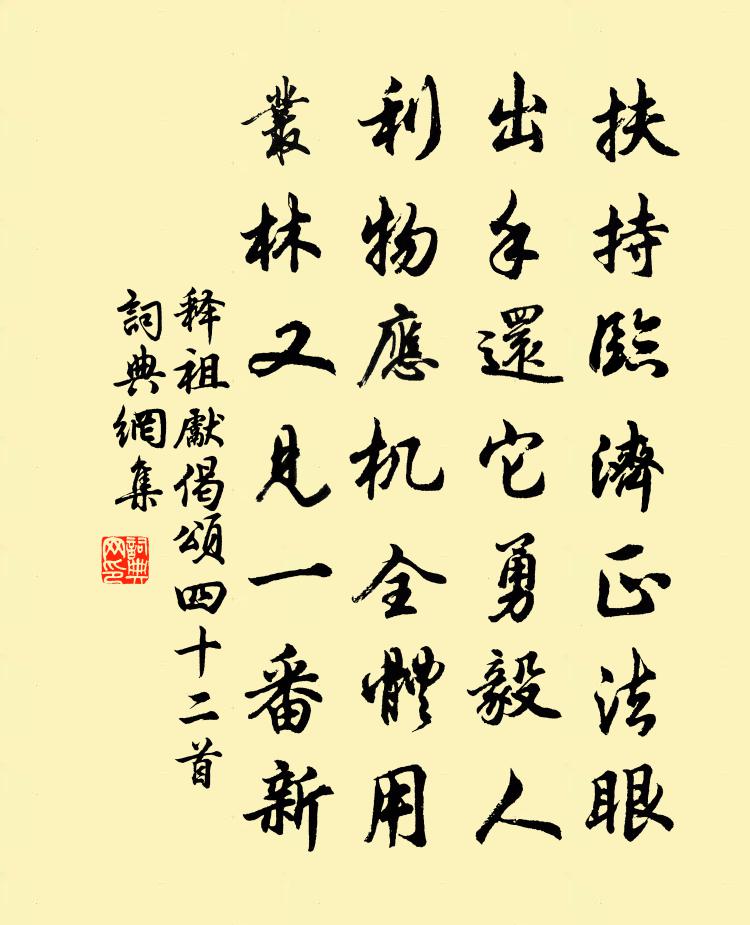 扶持臨濟正法眼
出手還它勇毅人
利物應机全體用
叢林又見一番新
释祖獻偈頌四十二首
詞典網集
詞典
网印